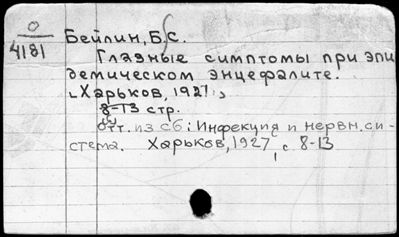 0
4181
Бейлин, Б. С.
Глазные симптомы при эпи
демическом энцефалите.
Харьков, 1927.
8-13 стр.
Отт. из сб: Инфекция и нервн. си-
стема. Харьков, 1927, с. 8-13